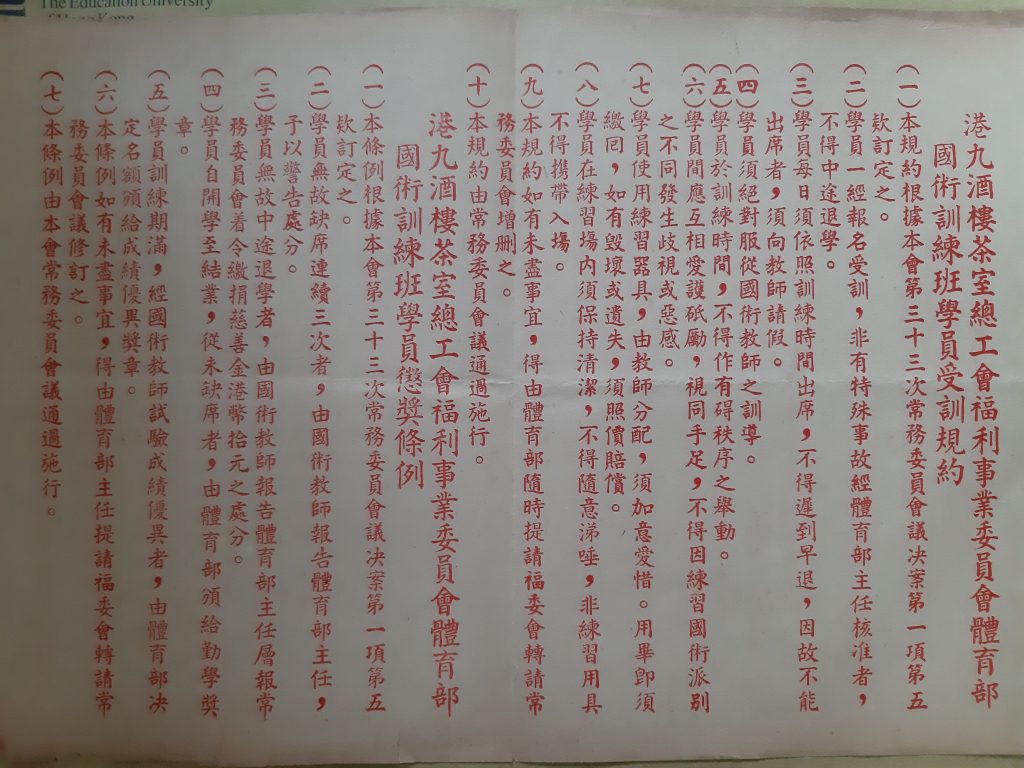 The Education University
of Hong Kong
港九酒樓茶室總工會福利事業委員會體育部
國術訓練班學員受訓規約
（一）本規約根據本會第三十三次常務委員會議决案第一項第五
欵訂定之。
（二）學員一經報名受訓，非有特殊事故經體育部主任核准者，
不得中途退學。
（三）學員每日須依照訓練時間出席，不得遲到早退，因故不能
出席者，須向教師請假。
（四）學員須絕對服從國術教師之訓導。
（五）學員於訓練時間，不得作有碍秩序之舉動。
（六）學員間應互相愛護砥勵，視同手足，不得因練習國術派別
之不同發生歧視或惡感。
（七）學員使用練習器具，由教師分配，須加意愛惜。用畢卽須
繳回，如有毀壞或遺失，須照價賠償。
（八）學員在練習塲内須保持清潔，不得隨意涕唾，非練習用具
不得携帶入塲。
（九）本規約如有未盡事宜，得由體育部隨時提請福委會轉請常
務委員會增删之。
（十）本規約由常務委員會議通過施行。
港九酒樓茶室總工會福利事業委員會體育部
國術訓練班學員懲獎條例
（一）本條例根據本會第三十三次常務委員會議决案第一項第五
欵訂定之。
（二）學員無故缺席連續三次者，由國術教師報告體育部主任，
予以警告處分。
（三）學員無故中途退學者，由國術教師報告體育部主任層報常
務委員會着令繳捐慈善金港幣拾元之處分。
（四）學員自開學至結業，從未缺席者，由體育部頒給勤學獎
章。
（五）學員訓練期滿，經國術教師試驗成績優異者，由體育部决
定名額頒給成績優異獎章。
（六）本條例如有未盡事宜，得由體育部主任提請福委會轉請常
務委員會議修訂之。
（七）本條例由本會常務委員會議通過施行。